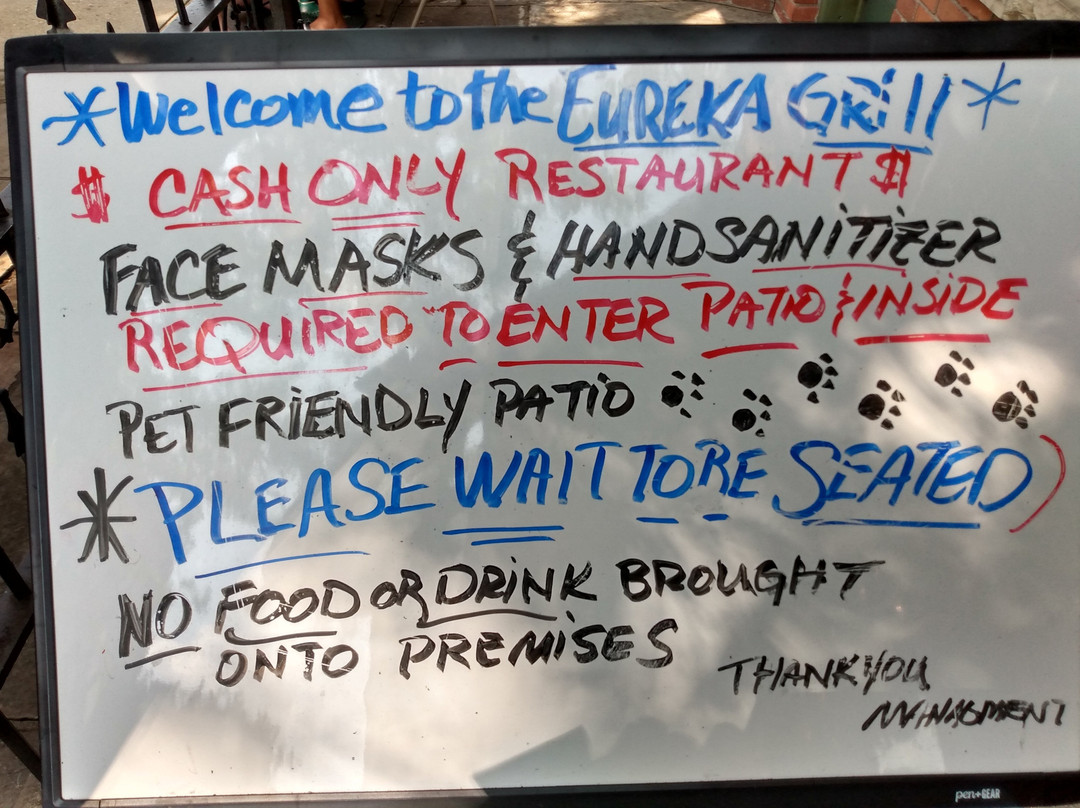 *Welcome to the EUREKA GRill*
$ CASH ONLY RESTAURANT $
FACE MASKS & HANDSANiTiZER
REQUIRED TO ENTER PATIO & INSiDE
PET FRiENDLY PATiO
*PLEASE WAIT TO BE SEATED)
NO FOOD OR DRiNK BROUGHT
ONTO PREMiSES
THANKYOU
MANAGMENT
pen+GEAR